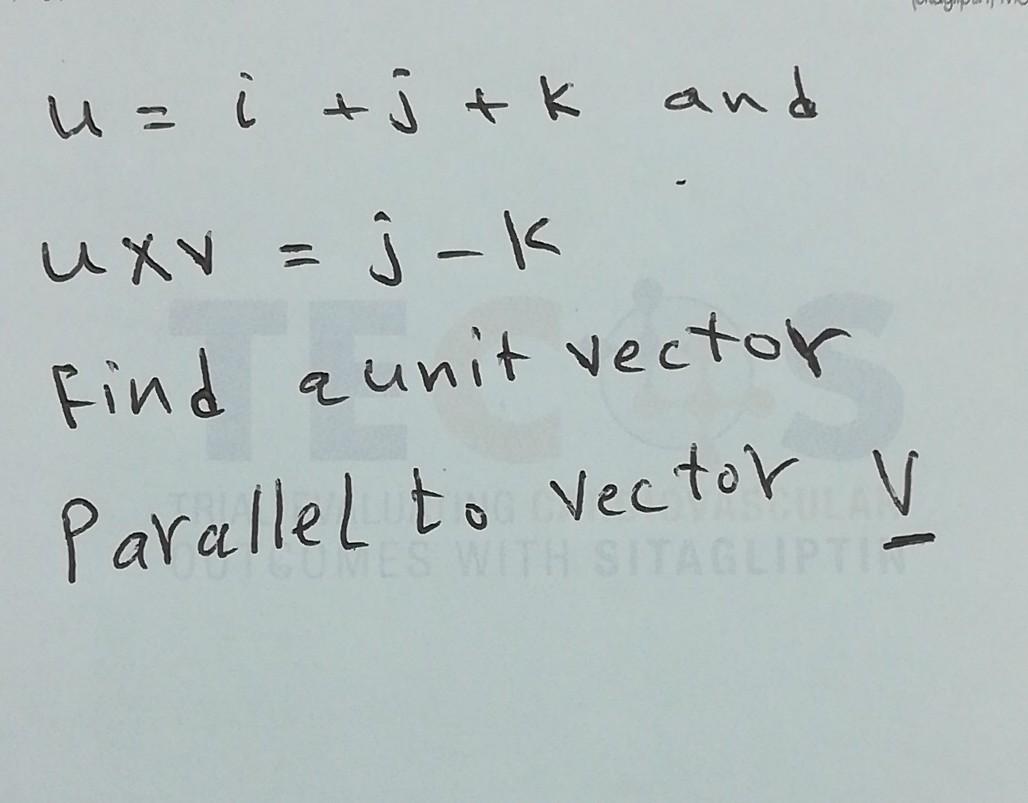 (sitagliptin)
u = i + j + k and
u x v = j - k
Find a unit vector
TECOS
Parallel to vector V
TRIAL EVALUATING CARDIOVASCULAR
OUTCOMES WITH SITAGLIPTIN